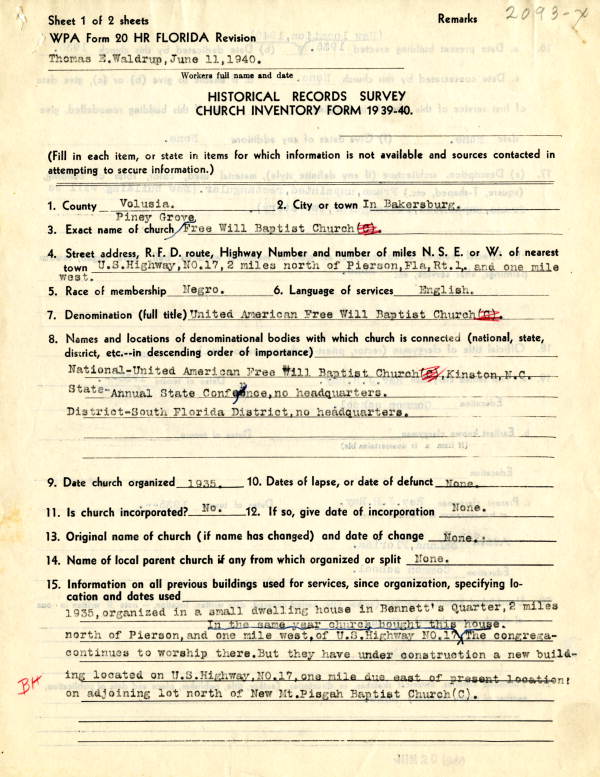 Sheet 1 of 2 sheets Remarks 2093-x
WPA Form 20 HR FLORIDA Revision
Thomas E.Waldrup,June 11,1940.
Workers full name and date
HISTORICAL RECORDS SURVEY
CHURCH INVENTORY FORM 1939-40.
(Fill in each item, or state in items for which information is not available and sources contacted in
attempting to secure information.)
1. County Volusia. 2. City or town In Bakersburg.
Piney Grove
3. Exact name of church Free Will Baptist Church(C).
4. Street address, R. F. D. route, Highway Number and number of miles N. S. E. or W. of nearest
town U.S.Highway,NO.17,2 miles north of Pierson,Fla,Rt.1. and one mile
west.
5. Race of membership Negro. 6. Language of services English.
7. Denomination (full title) United American Free Will Baptist Church(C).
8. Names and locations of denominational bodies with which church is connected (national, state,
district, etc.--in descending order of importance)
National-United American Free Will Baptist Church(C),Kinston,N.C.
State-Annual State Confence,no headquarters.
District-South Florida District,no headquarters.
9. Date church organized 1935. 10. Dates of lapse, or date of defunct None.
11. Is church incorporated? No. 12. If so, give date of incorporation None.
13. Original name of church (if name has changed) and date of change None.
14. Name of local parent church if any from which organized or split None.
15. Information on all previous buildings used for services, since organization, specifying lo-
cation and dates used
1935,organized in a small dwelling house in Bennett's Quarter,2 miles
In the same year church bought this house.
north of Pierson,and one mile west,of U.S.Highway NO.17 The congrega-
continues to worship there.But they have under construction a new build-
ing located on U.S.Highway,NO.17,one mile due east of present location:
BH
on adjoining lot north of New Mt.Pisgah Baptist Church(C).